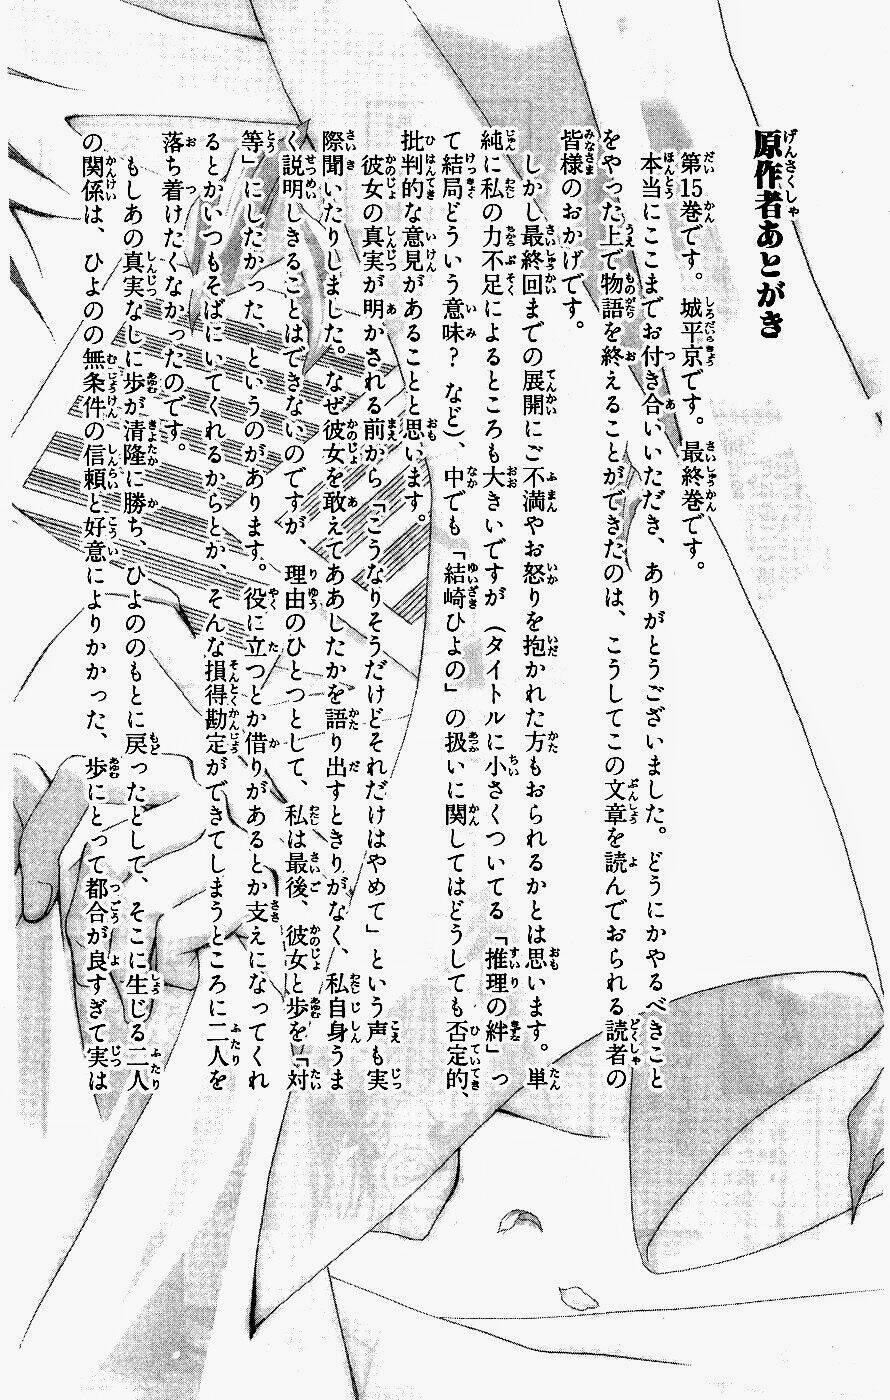 原作者あとがき
第15巻です。城平京です。最終巻です。
本当にここまでお付き合いいただき、ありがとうございました。どうにかやるべきこと
をやった上で物語を終えることができたのは、こうしてこの文章を読んでおられる読者の
皆様のおかげです。
しかし最終回までの展開にご不満やお怒りを抱かれた方もおられるかとは思います。単
純に私の力不足によるところも大きいですが（タイトルに小さくついてる「推理の絆」っ
て結局どういう意味？など）、中でも「結崎ひよの」の扱いに関してはどうしても否定的、
批判的な意見があることと思います。
彼女の真実が明かされる前から「こうなりそうだけどそれだけはやめて」という声も実
際聞いたりしました。なぜ彼女を敢えてああしたかを語り出すときりがなく、私自身うま
く説明しきることはできないのですが、理由のひとつとして、私は最後、彼女と歩を「対
等」にしたかった、というのがあります。役に立つとか借りがあるとか支えになってくれ
るとかいつもそばにいてくれるからとか、そんな損得勘定ができてしまうところに二人を
落ち着けたくなかったのです。
もしあの真実なしに歩が清隆に勝ち、ひよののもとに戻ったとして、そこに生じる二人
の関係は、ひよのの無条件の信頼と好意によりかかった、歩にとって都合が良すぎて実は